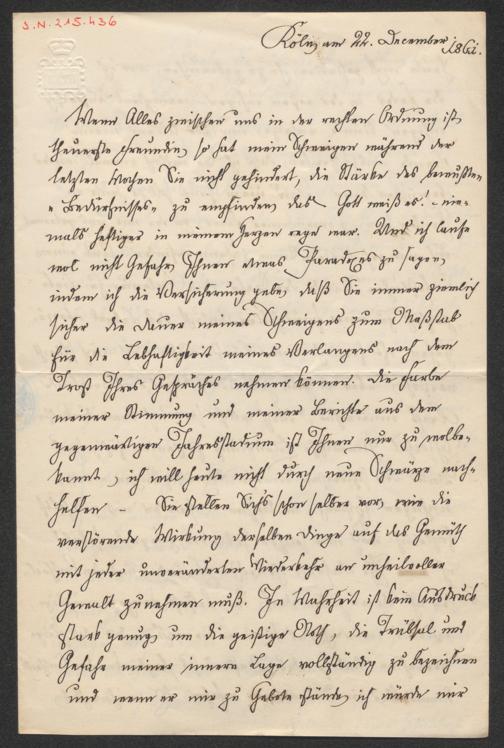 J.N. 215.436
Köln, am 22. December 1861.
Wenn Alles zwischen uns in der rechten Ordnung ist,
theuerste Freundin, so hat mein Schweigen während der
letzten Wochen Sie nicht gehindert, die Stärke des bewußten
"Bedürfnisses" zu empfinden, das - Gott weiß es! - nie-
mals heftiger in meinem Herzen rege war. Und ich laufe
wol nicht Gefahr, Ihnen etwas Paradoxes zu sagen,
indem ich die Versicherung gebe, daß Sie immer ziemlich
sicher die Dauer meines Schweigens zum Maßstab
für die Lebhaftigkeit meines Verlangens nach dem
Trost Ihres Gespräches nehmen können. Die Farbe
meiner Stimmung und meiner Berichte aus dem
gegenwärtigen Jahresstadium ist Ihnen nur zu wolbe-
kannt, ich will heute nicht durch neue Schwärze nach-
helfen - Sie stellen Sich's schon selber vor, wie die
verstörende Wirkung derselben Dinge auf das Gemüth
mit jeder unveränderten Wiederkehr an unheilvoller
Gewalt zunehmen muß. In Wahrheit ist kein Ausdruck
stark genug, um die geistige Noth, die Trübsal und
Gefahr meiner innern Lage vollständig zu bezeichnen
und wenn er mir zu Gebote stände, ich würde mir